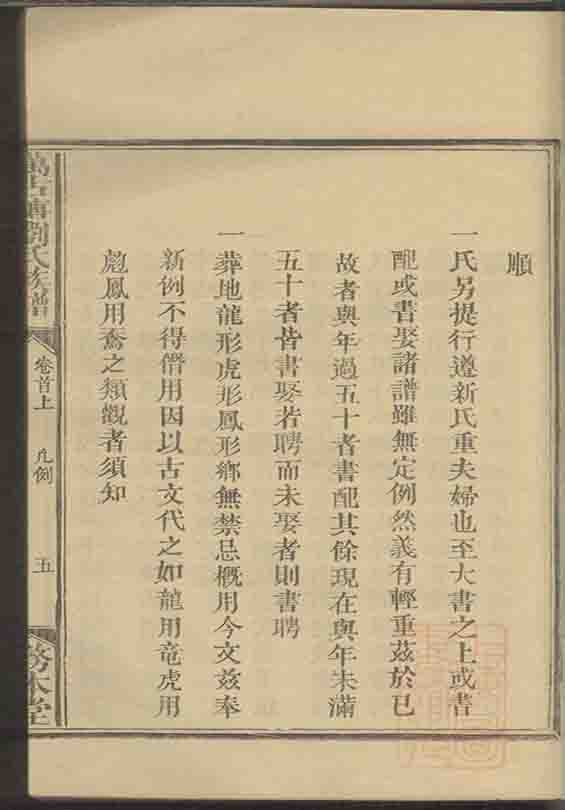 順
一氏另提行遵新氏重夫婦也至大書之上或書
配或書娶諸譜雖無定例然義有輕重茲於已
故者與年過五十者書配其餘現在與年未滿
五十者皆書娶若聘而未娶者則書聘
一葬地龍形虎形鳳形鄉無禁忌概用今文茲奉
新例不得僭用因以古文代之如龍用竜虎用
鳳用之類觀者須知
劉氏族譜
卷首上
凡例
五
務本堂